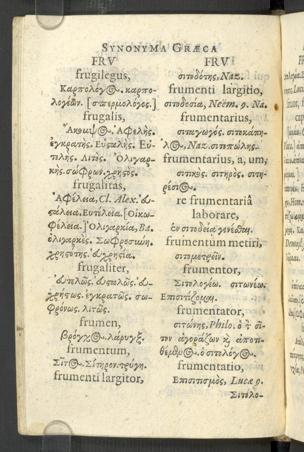 SYNONYMA GRÆCA
FRV
frugilegus,
Καρπολόγος. καρπο-
λογεῖων. [σπερμολόγος.]
frugalis,
Ἀφελής.
ἐγκρατής. Εὐτελής. Εὐ-
τιλής. Λιτός. Ὀλιγαρ-
κής. σώφρων. χρηστός.
frugalitas,
Ἀφέλεια, Cl. Alex. εὐ-
τέλεια. Εὐτιλεία. [Οἰκω-
φέλεια.] Ὀλιγαρκία, Βα.
ὀλιγαρκές. Σωφροσύνη.
χρηστότης. εὐχρησία.
frugaliter,
εὐτελῶς. εὐ-
χρήστως. ἐγκρατῶς. σω-
φρόνως. λιτῶς.
frumen,
βρόγχος. λάρυγξ.
frumentum,
Σῖτος. Σιτηρόν. τρύγη.
frumenti largitor,
FRV
σιτοδότης, Naz.
frumenti largitio,
σιτοδοσία, Neëm. 9. Na.
frumentarius,
σιταγωγός. σιτοκάπη-
λος, Naz. σιτοπώλης.
frumentarius, a, um,
σιτικός. σιτηρός. σιτη-
ρέσιος.
re frumentariâ
laborare,
ἐν σιτοδείᾳ γενέσθαι.
frumentum metiri,
σιτομετρεῖν.
frumentor,
Σιτολογέω. σιτωνέω.
Επισιτίζομαι.
frumentator,
σιτώνης, Philo. ὁ τ̀ σῖ-
τον ἀγοράζων κ̀ ἀποτι-
θέμενος. ὁ σιτολόγος.
frumentatio,
Επισιτισμός, Lucæ 9.
Σιτολο-